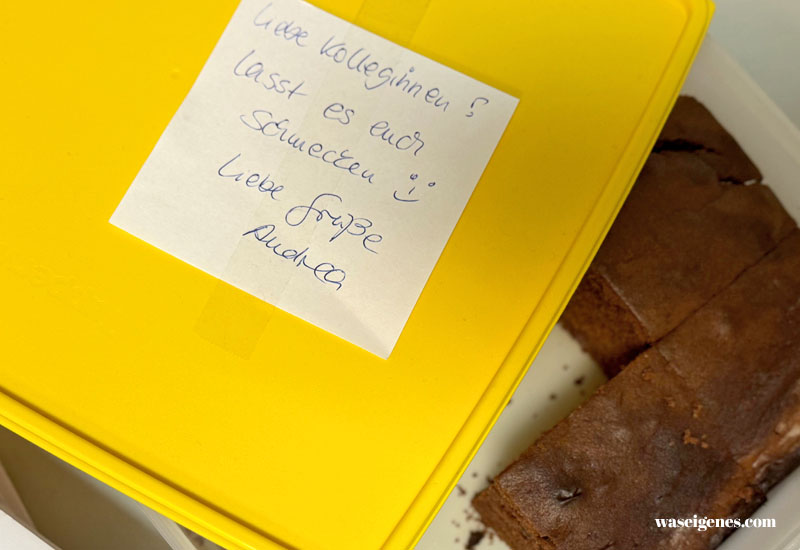 Liebe Kolleginnen!
lasst es euch
schmecken :)
Liebe Grüße
Andrea
waseigenes.com